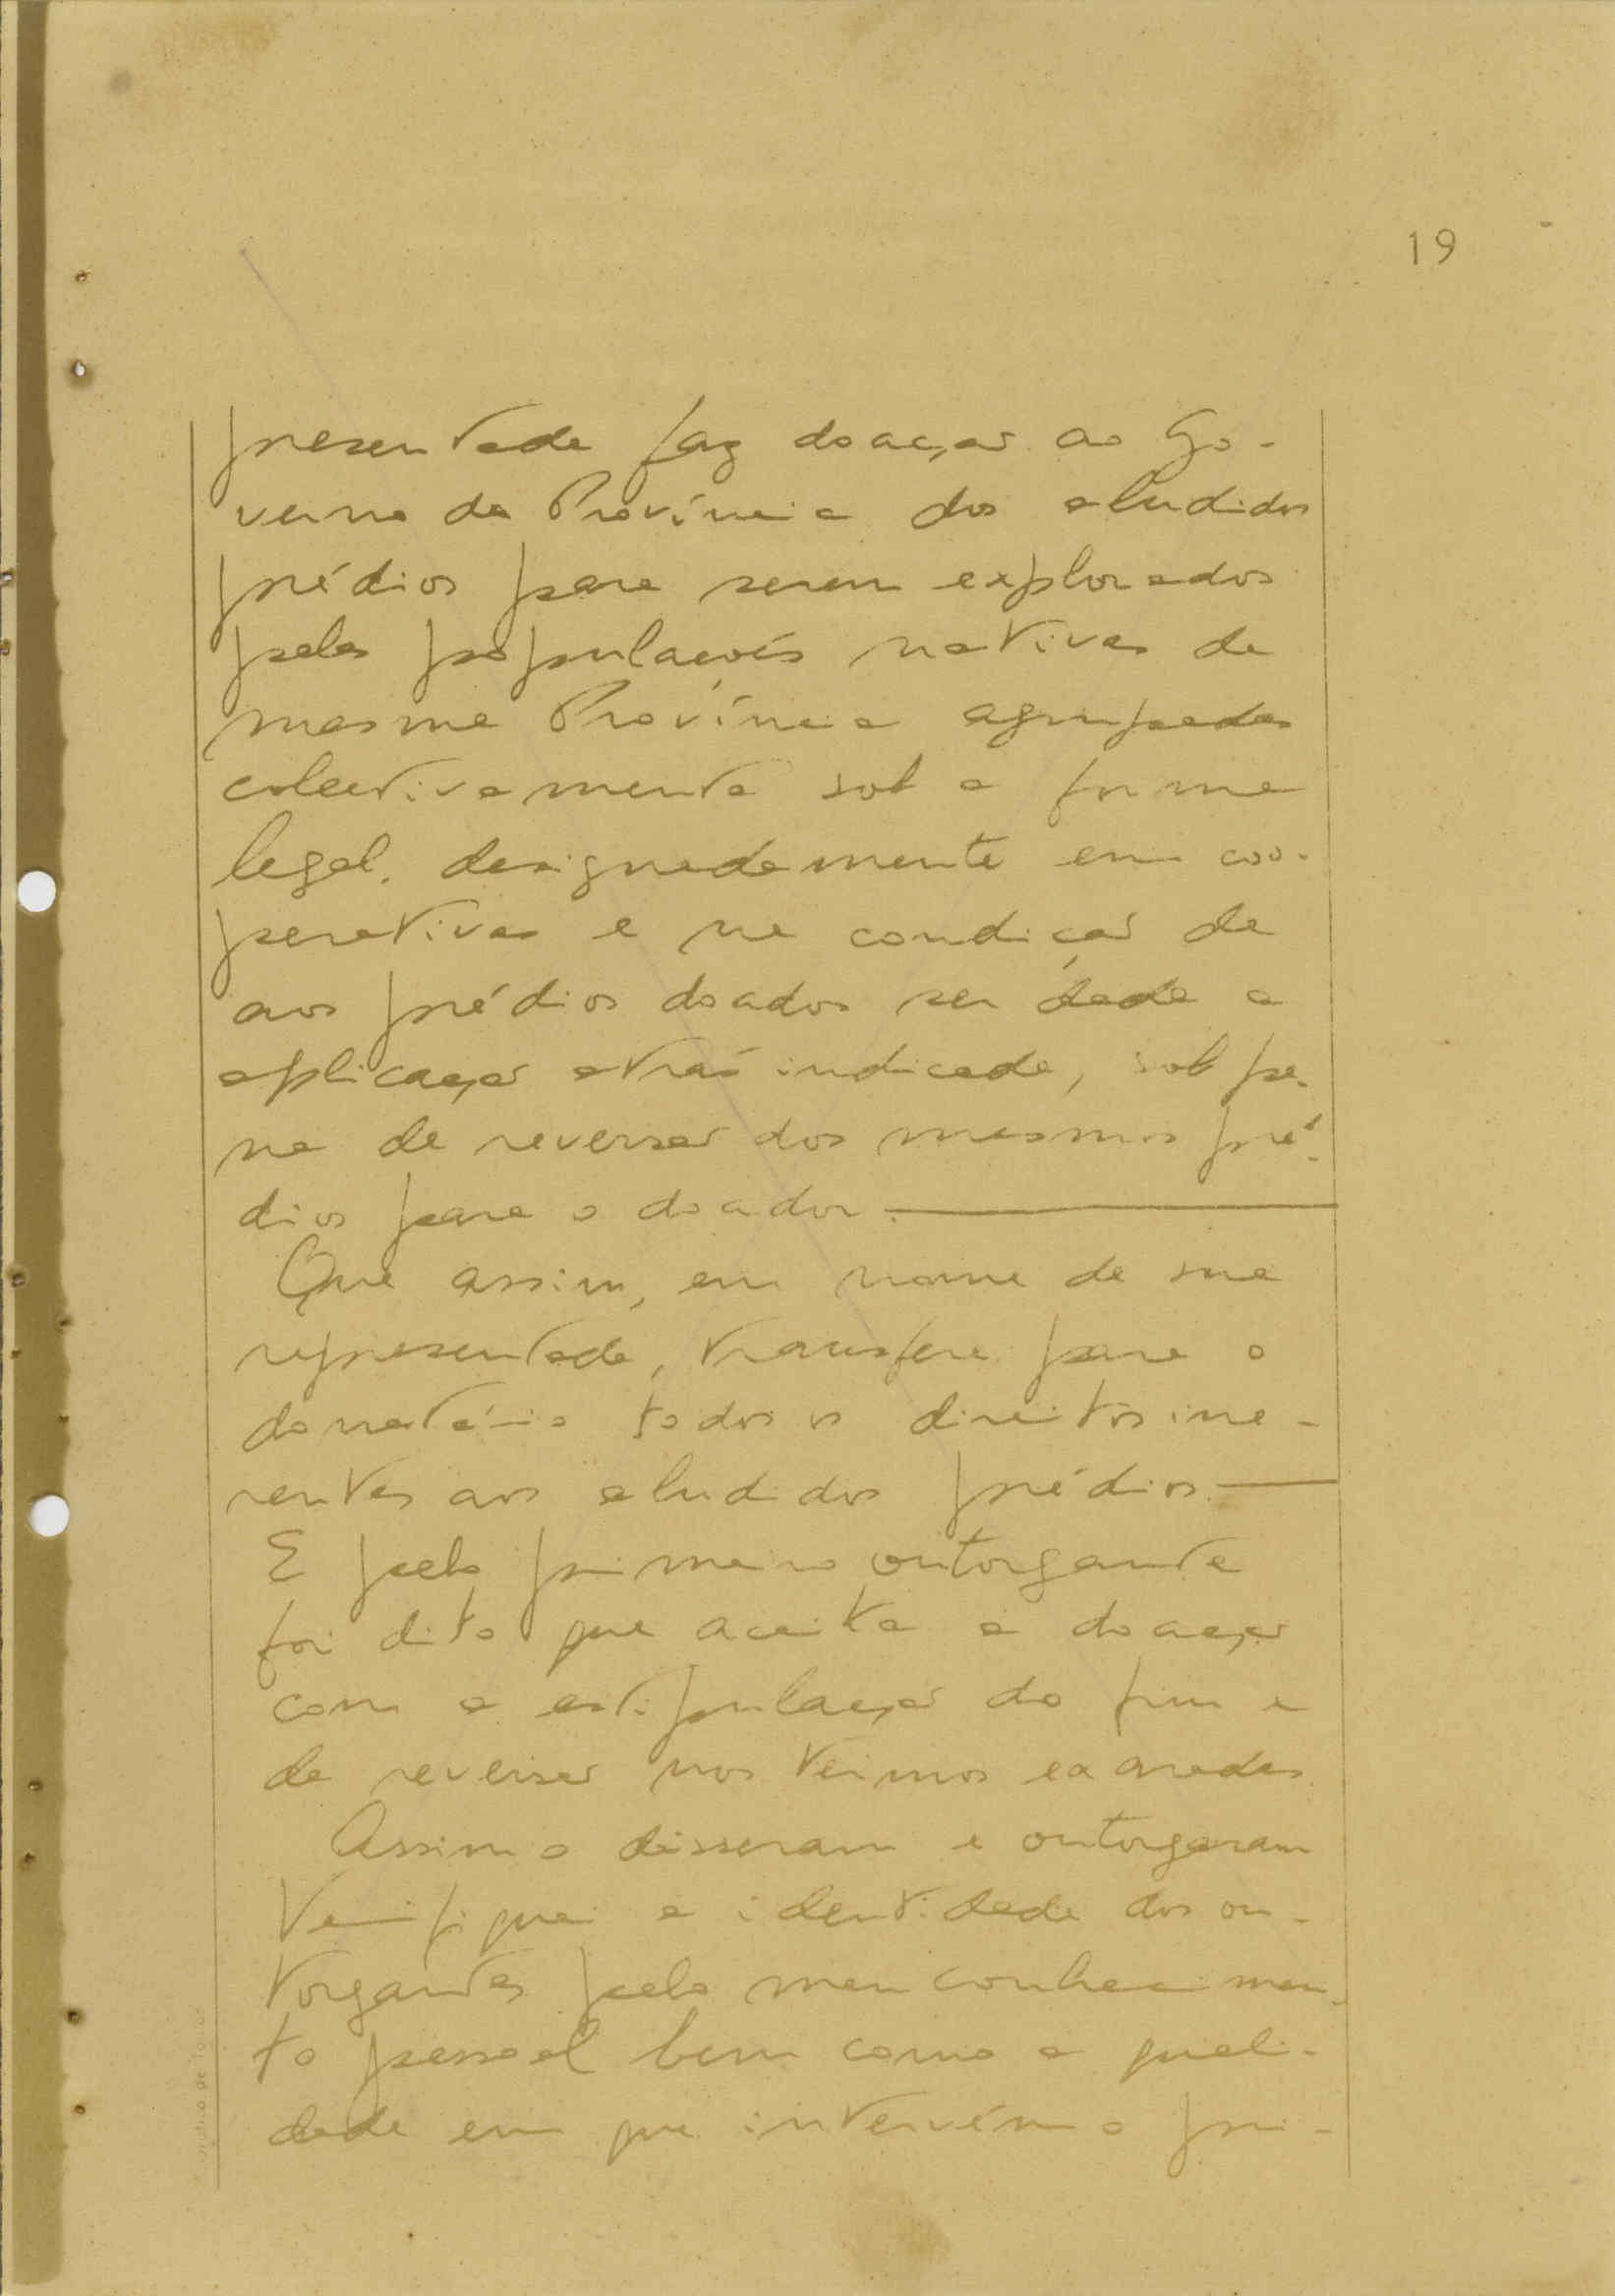 19
presentada faz doação ao Go-
verno da Província dos aludidos
prédios para serem explorados
pelas populações nativas da
mesma Província agrupadas
colectivamente sob a forma
legal, designadamente em coo-
perativas e na condição de
aos prédios doados ser dada a
aplicação atrás indicada, sob pe-
na de reversão dos mesmos pré-
dios para o doador.
Que assim, em nome da sua
representada, transfere para o
donatário todos os direitos ine-
rentes aos aludidos prédios.
E pelo primeiro outorgante
foi dito que aceita a doação
com a estipulação do fim e
da reversão nos termos exarados.
Assim o disseram e outorgaram
Verifiquei a identidade dos ou-
torgantes pelo meu conhecimen-
to pessoal bem como a quali-
dade em que intervém o pri-